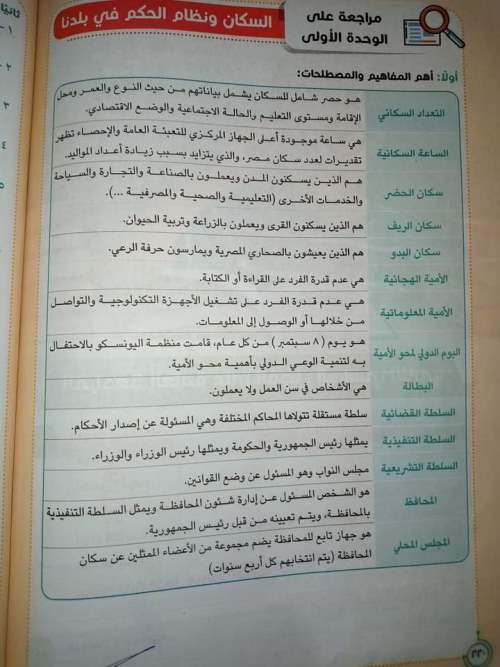 مراجعة على
الوحدة الأولى
السكان ونظام الحكم في بلدنا
أولاً: أهم المفاهيم والمصطلحات:
التعداد السكاني
هو حصر شامل للسكان يشمل بياناتهم من حيث النوع والعمر ومحل
الإقامة ومستوى التعليم والحالة الاجتماعية والوضع الاقتصادي.
الساعة السكانية
هي ساعة موجودة أعلى الجهاز المركزي للتعبئة العامة والإحصاء تظهر
تقديرات لعدد سكان مصر، والذي يتزايد بسبب زيادة أعداد المواليد.
سكان الحضر
هم الذين يسكنون المدن ويعملون بالصناعة والتجارة والسياحة
والخدمات الأخرى (التعليمية والصحية والمصرفية ...).
سكان الريف
هم الذين يسكنون القرى ويعملون بالزراعة وتربية الحيوان.
سكان البدو
هم الذين يعيشون بالصحاري المصرية ويمارسون حرفة الرعي.
الأمية الهجائية
هي عدم قدرة الفرد على القراءة أو الكتابة.
الأمية المعلوماتية
هي عدم قدرة الفرد على تشغيل الأجهزة التكنولوجية والتواصل
من خلالها أو الوصول إلى المعلومات.
اليوم الدولي لمحو الأمية
هو يوم (٨ سبتمبر) من كل عام، قامت منظمة اليونسكو بالاحتفال
به لتنمية الوعي الدولي بأهمية محو الأمية.
البطالة
هي الأشخاص في سن العمل ولا يعملون.
السلطة القضائية
سلطة مستقلة تتولاها المحاكم المختلفة وهي المسئولة عن إصدار الأحكام.
السلطة التنفيذية
يمثلها رئيس الجمهورية والحكومة ويمثلها رئيس الوزراء والوزراء.
السلطة التشريعية
مجلس النواب وهو المسئول عن وضع القوانين.
المحافظ
هو الشخص المسئول عن إدارة شئون المحافظة ويمثل السلطة التنفيذية
بالمحافظة، ويتم تعيينه من قبل رئيس الجمهورية.
المجلس المحلي
هو جهاز تابع للمحافظة يضم مجموعة من الأعضاء الممثلين عن سكان
المحافظة (يتم انتخابهم كل أربع سنوات)
٢٣٠
ثانيًا
١
٢
٣
٤
٥